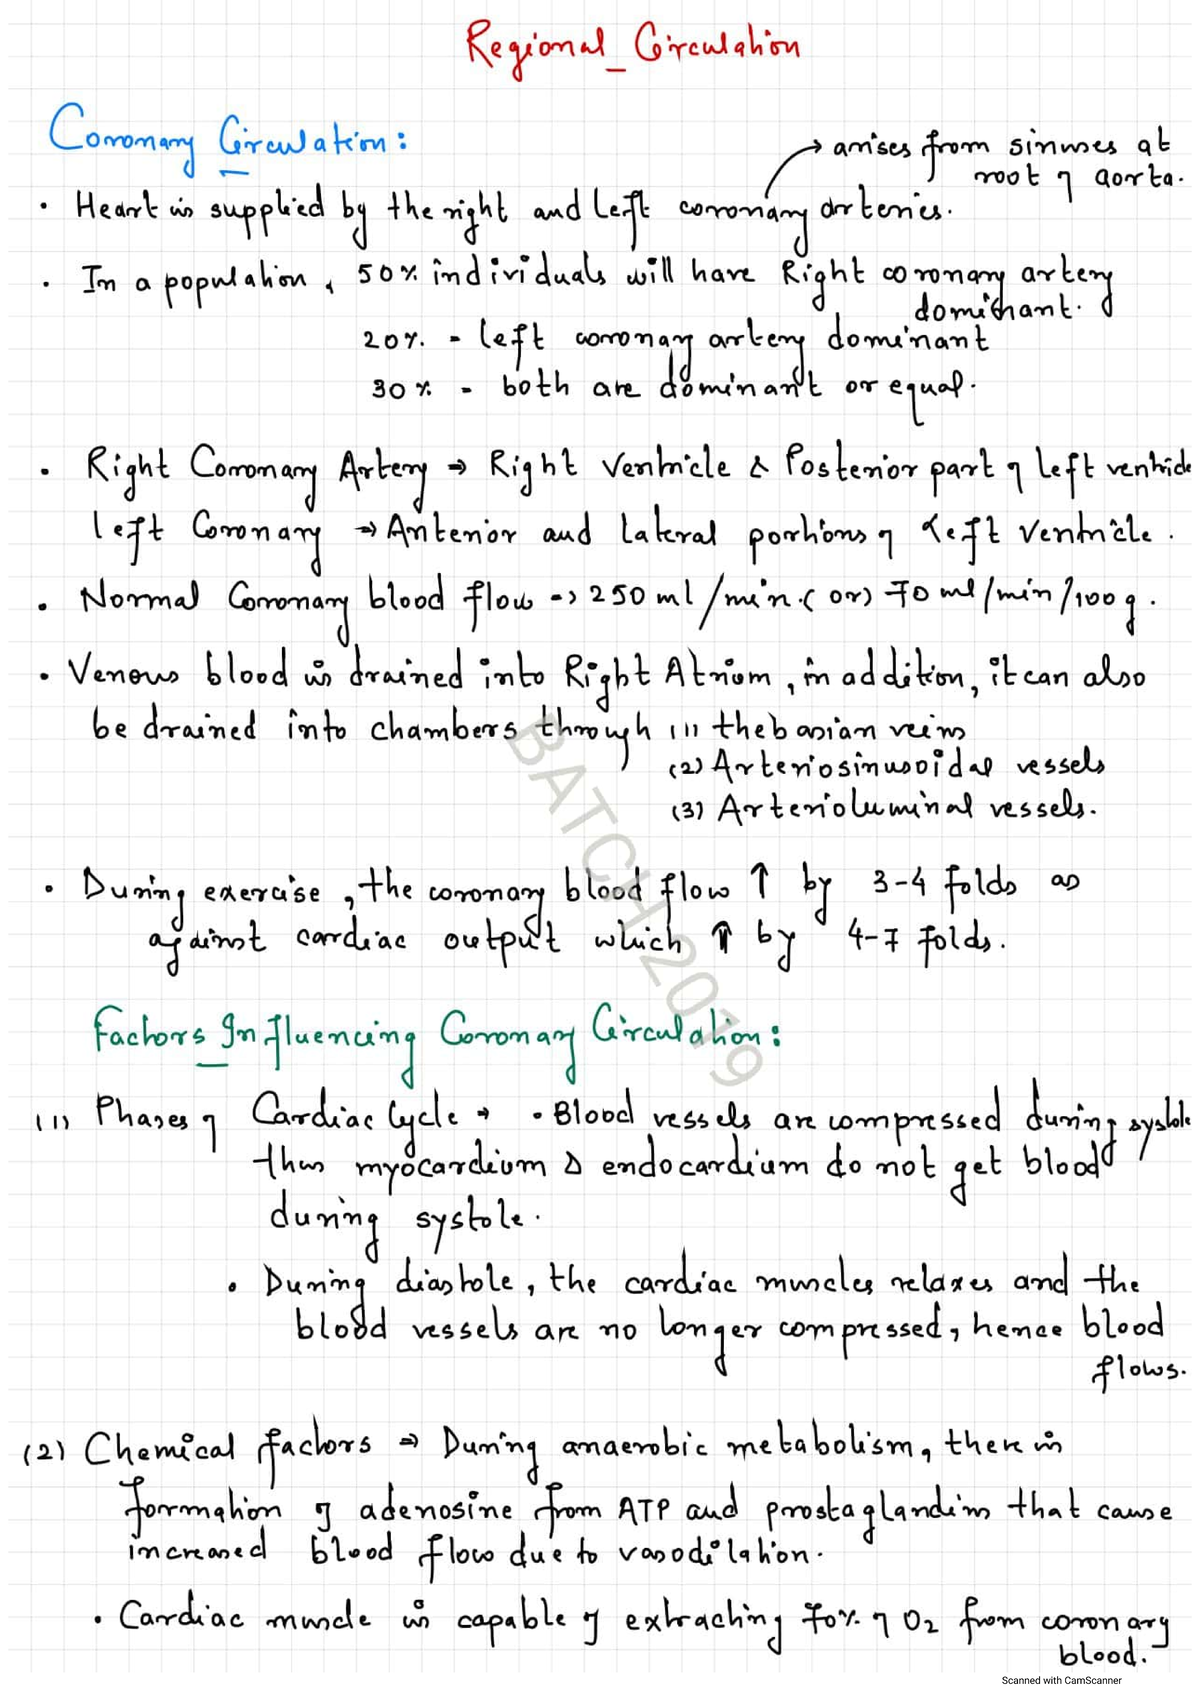 Regional Circulation
Coronary Circulation:
→ arises from sinuses at
root of aorta.
• Heart is supplied by the right and left coronary arteries.
• In a population, 50% individuals will have Right coronary artery
dominant.
20% - left coronary artery dominant
30% - both are dominant or equal.
• Right Coronary Artery ⇒ Right Ventricle & Posterior part of left ventricle
left Coronary → Anterior and lateral portions of left Ventricle.
• Normal Coronary blood flow => 250 ml/min. (or) 70 ml/min/100g.
• Venous blood is drained into Right Atrium, in addition, it can also
be drained into chambers through (1) thebasian veins
(2) Arteriosinusoidal vessels
(3) Arterioluminal vessels.
• During exercise, the coronary blood flow ↑ by 3-4 folds as
against cardiac output which ⇑ by 4-7 folds.
BATCH 2019
Factors Influencing Coronary Circulation:
(1) Phases of Cardiac Cycle → • Blood vessels are compressed during systole
thus myocardium & endocardium do not get blood
during systole.
• During diastole, the cardiac muscles relaxes and the
blood vessels are no longer compressed, hence blood
flows.
(2) Chemical factors ⇒ During anaerobic metabolism, there is
formation of adenosine from ATP and prostaglandins that cause
increased blood flow due to vasodilation.
• Cardiac muscle is capable of extracting 70% of O2 from coronary
blood.
Scanned with CamScanner